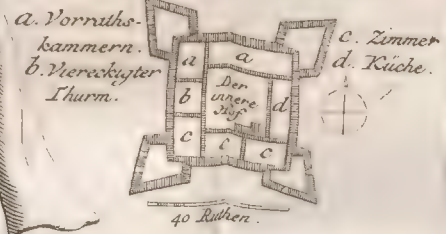 a. Vorraths-
kammern.
b. Viereckigter
Thurm.
c. Zimmer
d. Küche.
a
a
b
Der
innere
Hof
d
c
c
c
40 Ruthen.